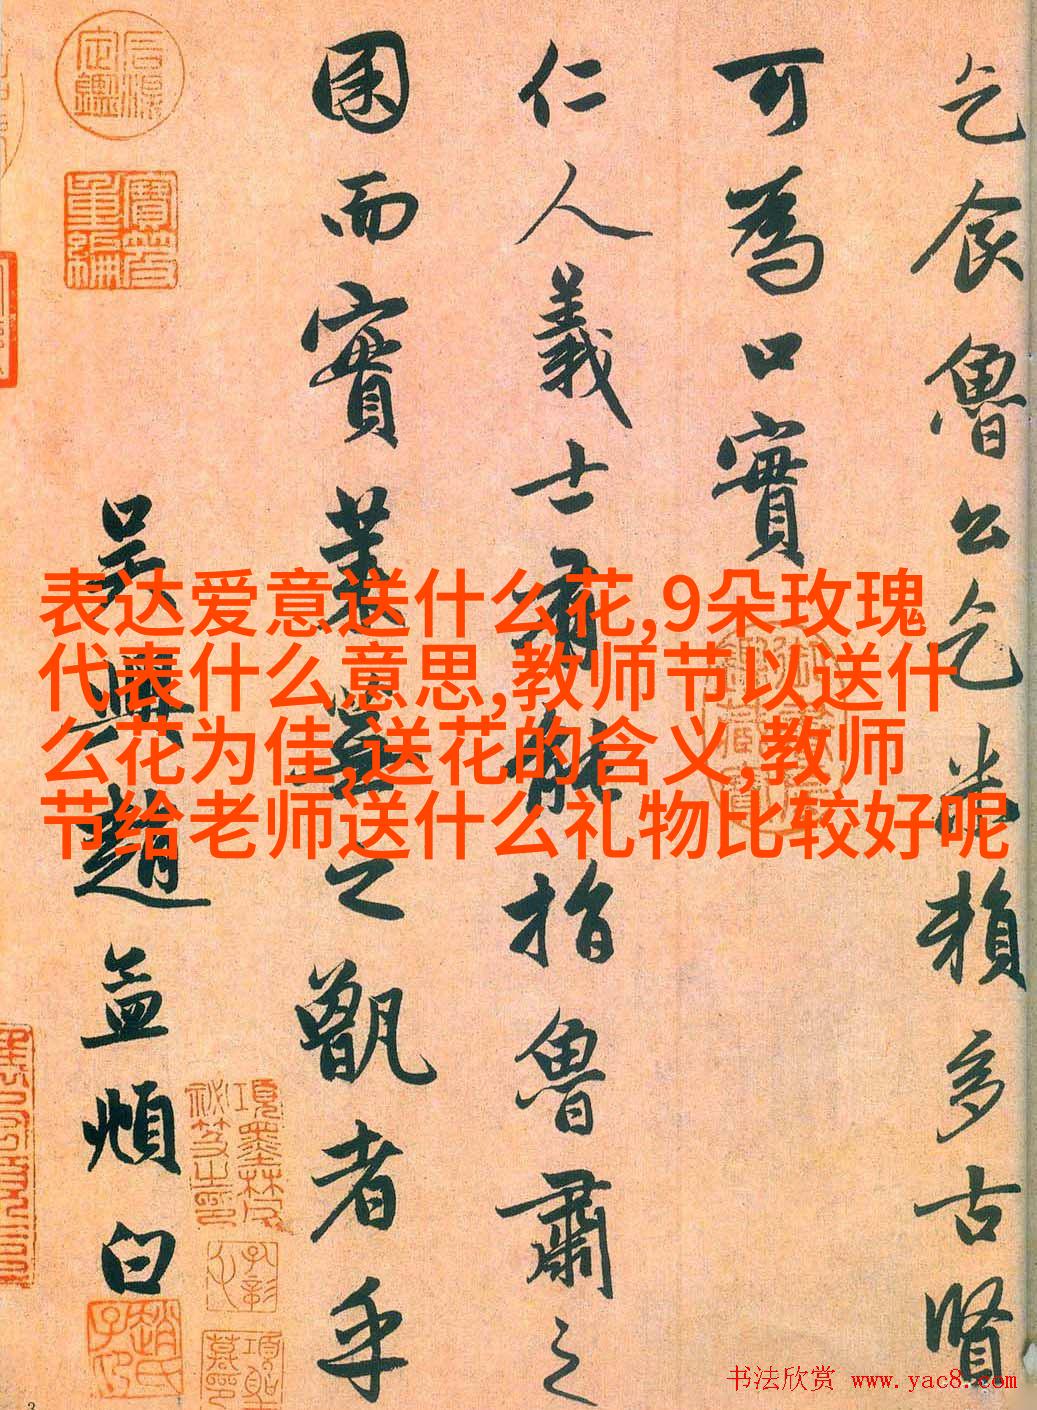 乞食魯公乞米賴多古賢
可為口實
仁人義士肅能指魯肅之
囷而實萊蕪之甑者乎
吳興趙孟頫白
表达爱意送什么花,9朵玫瑰
代表什么意思,教师节以送什
么花为佳,送花的含义,教师
节给老师送什么礼物比较好呢
趙氏子昂
書法欣赏 www.yac8.com